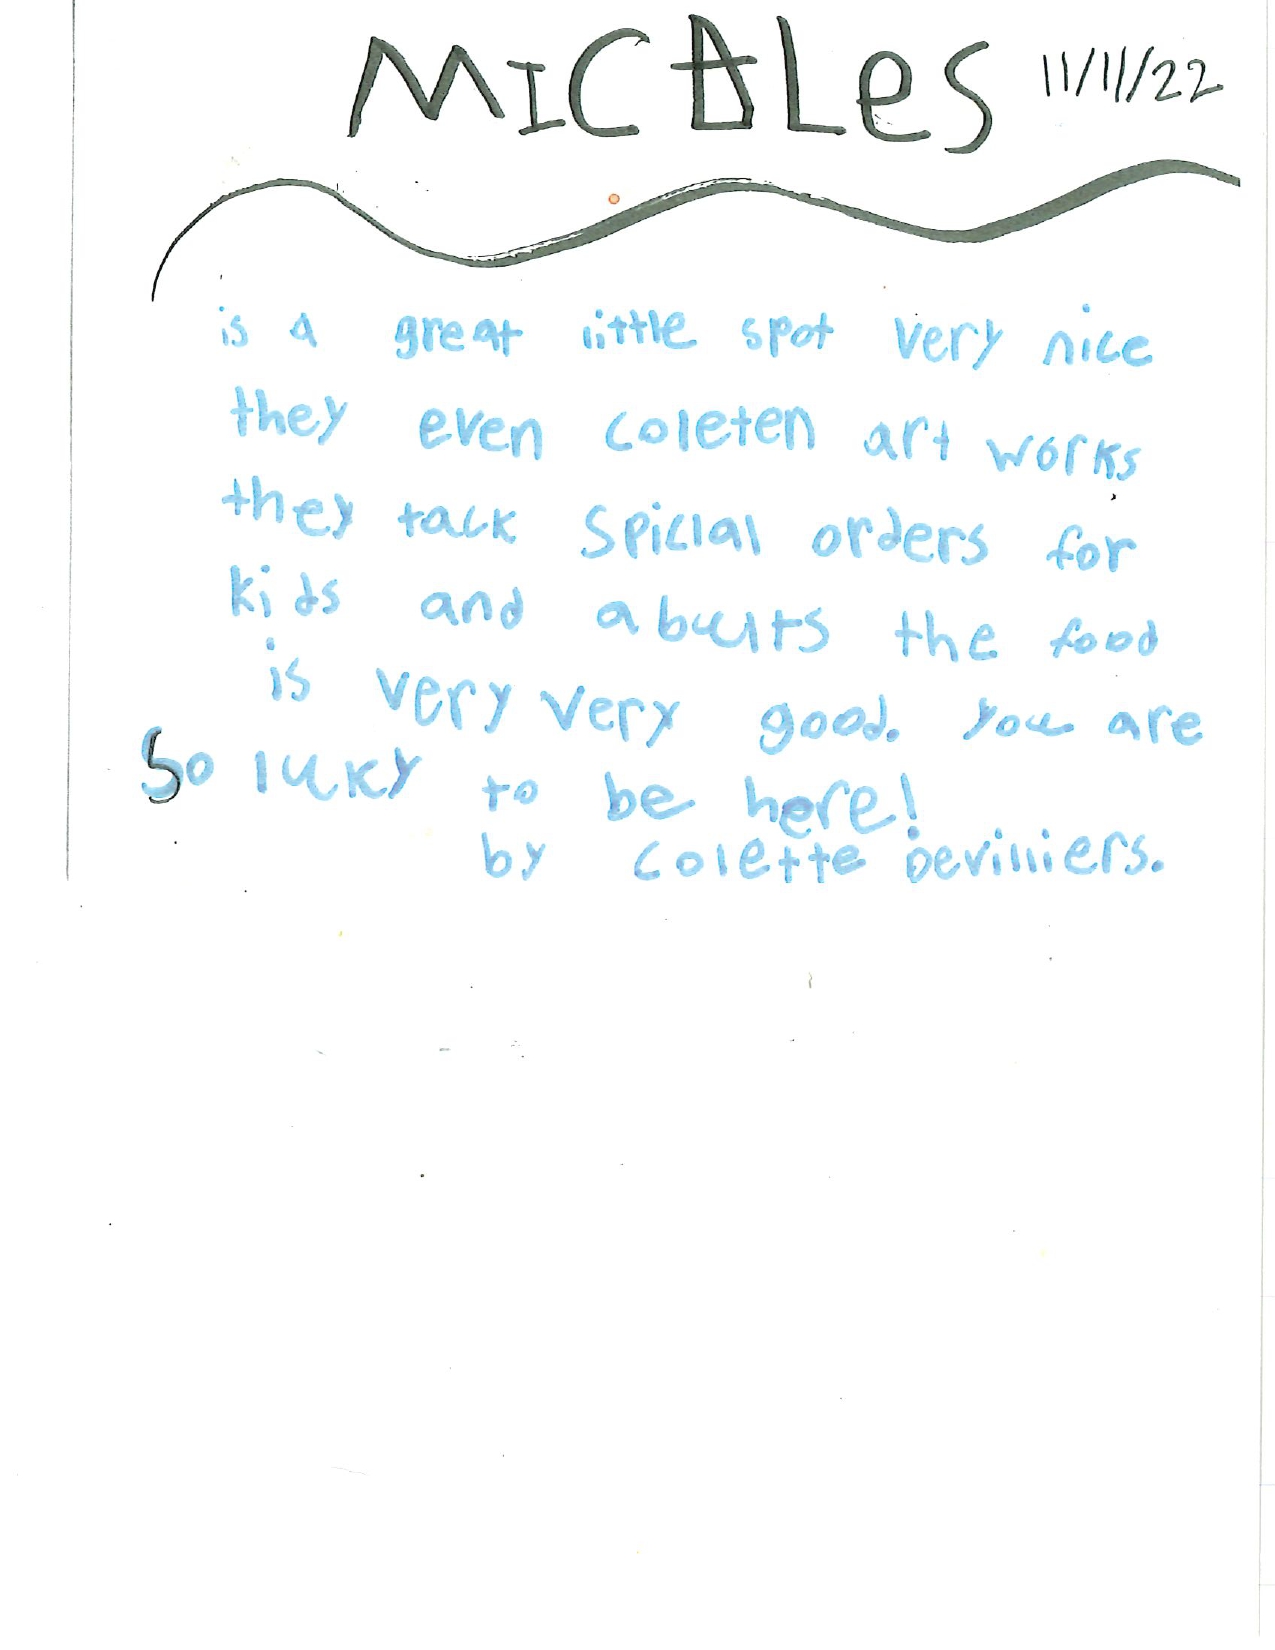 MICALes 11/11/22
is a great little spot very nice
they even coleten art works
they tack Spicial orders for
kids and abults the food
is very very good. you are
So luky to be here!
by Colette Devilliers.